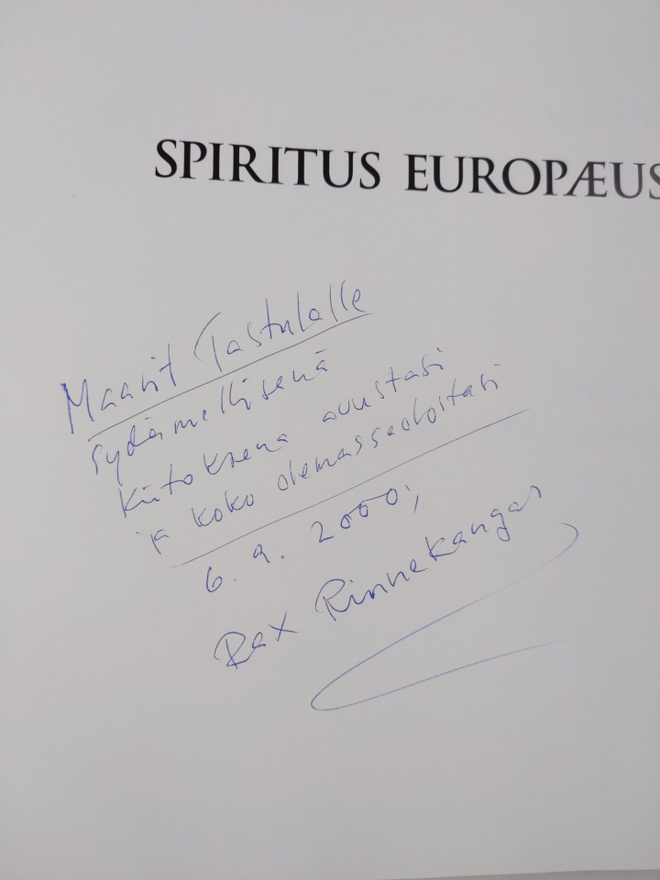 SPIRITUS EUROPÆUS
Maarit Tastulalle
sydämellisenä
kiitoksena avustasi
ja koko olemassaolostasi
6.9.2000;
Rax Rinnekangas